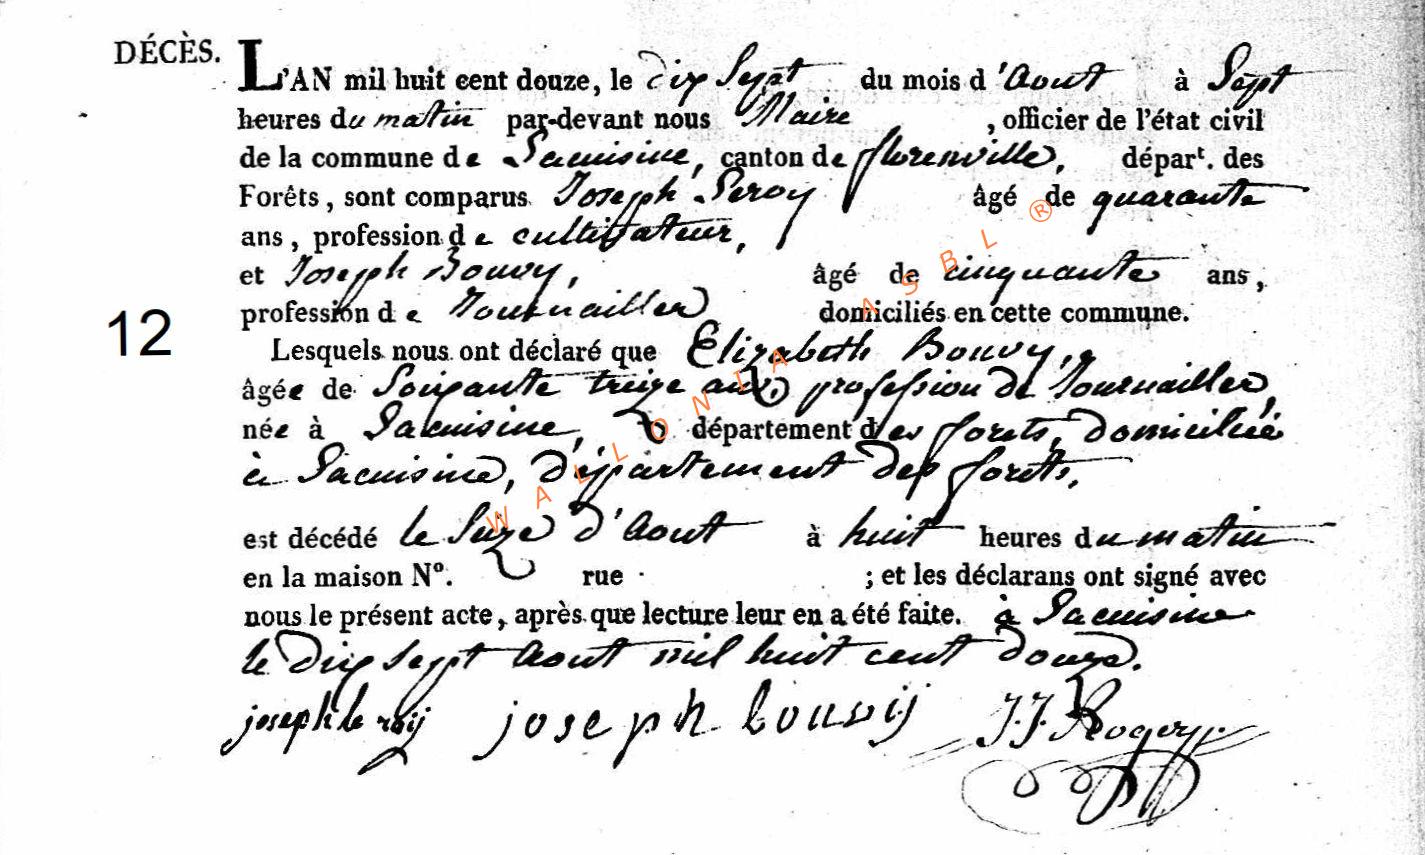 DÉCÈS.
L'AN mil huit cent douze, le dix Sept du mois d'Aout à Sept
heures du matin par-devant nous Maire, officier de l'état civil
de la commune de Lacuisine, canton de florenville, départ. des
Forêts, sont comparus Joseph Leroy âgé de quarante
ans, profession de cultivateur,
et Joseph Bouvy, âgé de cinquante ans,
profession de Journailler domiciliés en cette commune.
12
Lesquels nous ont déclaré que Elizabeth Bouvy,
âgée de Soixante treize ans, profession de Journailler,
née à Lacuisine, département des forets, domiciliée
à Lacuisine, département des forets,
est décédé le Suze d'Aout à huit heures du matin
en la maison N°. rue ; et les déclarans ont signé avec
nous le présent acte, après que lecture leur en a été faite. à Lacuisine
le dix Sept Aout mil huit cent douze.
joseph le roij joseph bouvij J.J. Rogery
WALLONIA ASBL ®